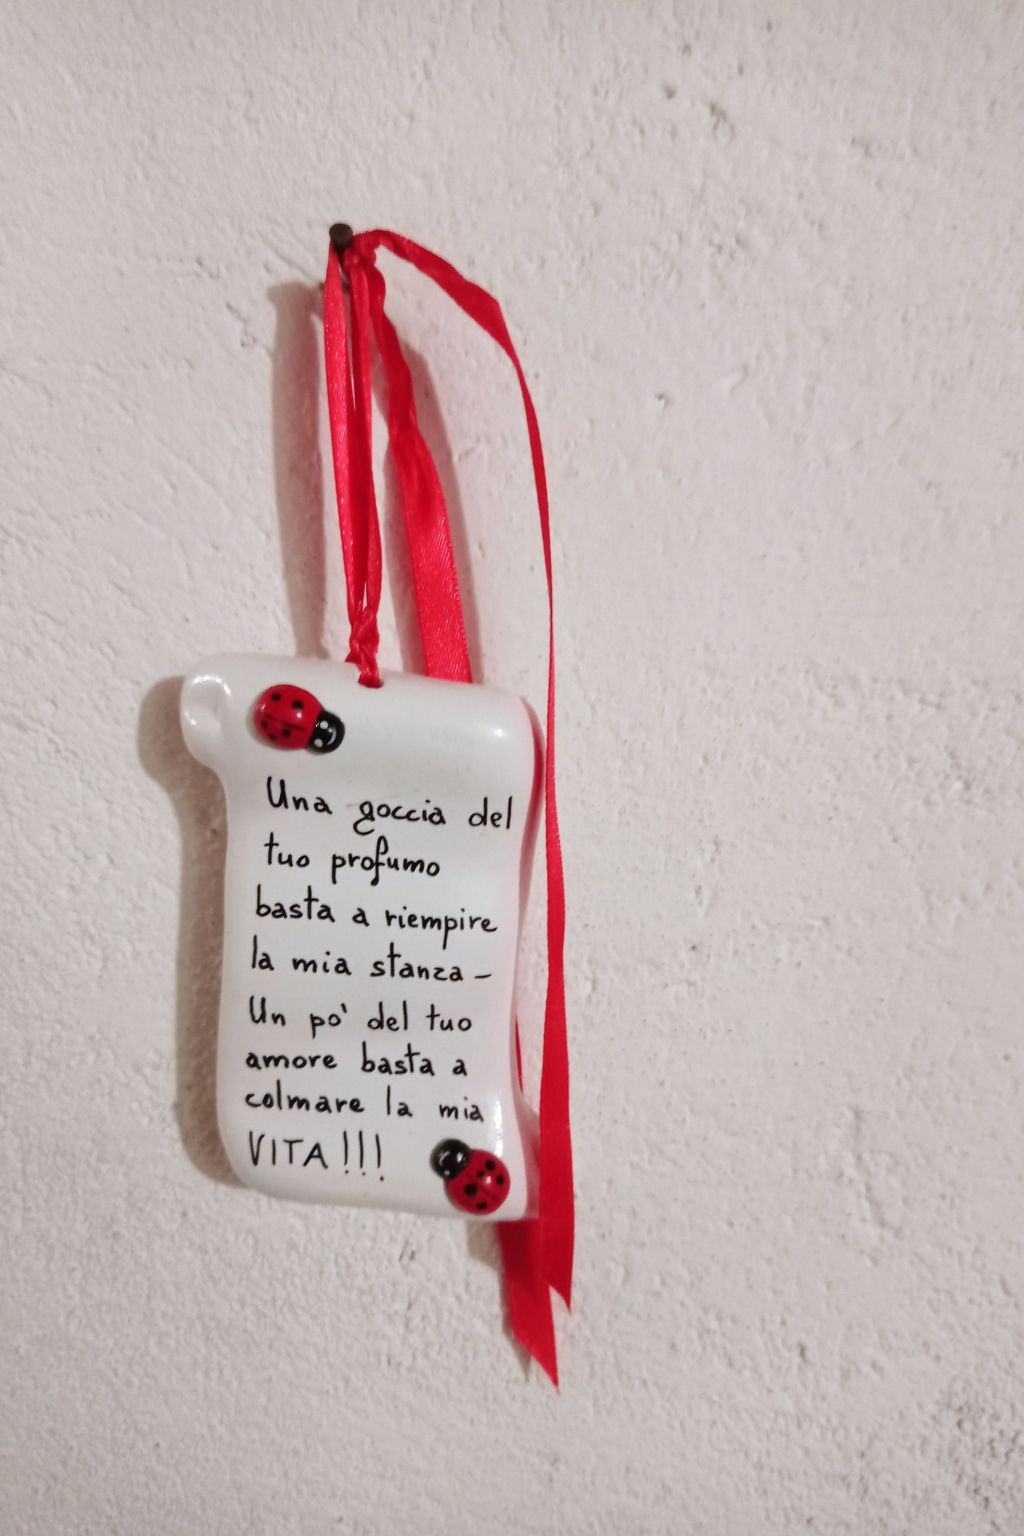 Una goccia del
tuo profumo
basta a riempire
la mia stanza -
Un po' del tuo
amore basta a
colmare la mia
VITA!!!